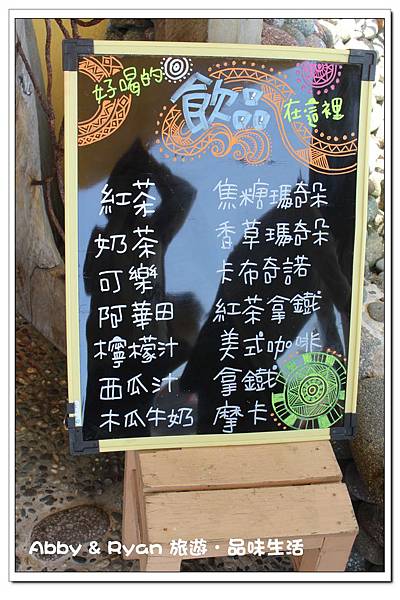 好喝的
飲品
在這裡
紅茶
奶茶
可樂
阿華田
檸檬汁
西瓜汁
木瓜牛奶
焦糖瑪奇朵
香草瑪奇朵
卡布奇諾
紅茶拿鐵
美式咖啡
拿鐵
摩卡
Abby & Ryan 旅遊・品味生活